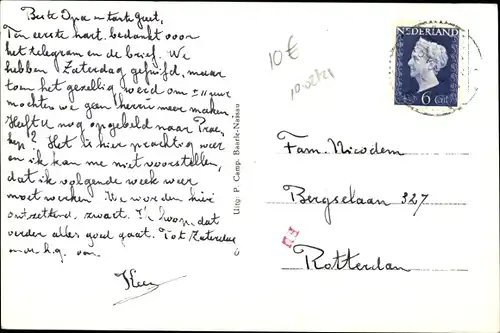 Beste Opa en tante Greet,
Ten eerste hart. bedankt voor
het telegram en de brief. We
hebben Zaterdag gefuifd, maar
toen het gezellig werd om 11 uur
mochten we geen herrie meer maken
Heeft U nog opgebeld naar
Het is hier prachtig weer
en ik kan me niet voorstellen,
dat ik volgende week weer
moet werken. We worden hier
ontzettend zwart. Ik hoop, dat
verder alles goed gaat. Tot Zaterdag
en h.g. van
Kees
Uitg: P. Camp. Baarle-Nassau
10€
NEDERLAND
6 CENT
Fam. Nicodem
Bergselaan 327
Rotterdam